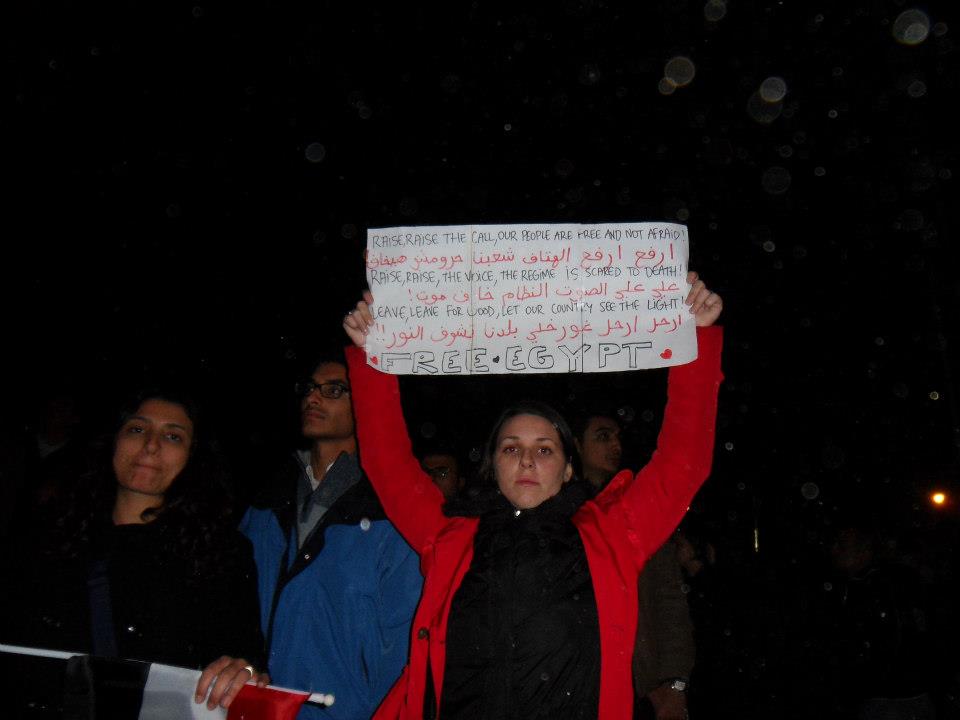 RAISE, RAISE THE CALL, OUR PEOPLE ARE FREE AND NOT AFRAID!
ارفع ارفع الهتاف شعبنا حر ومش هيخاف!
RAISE, RAISE, THE VOICE, THE REGIME IS SCARED TO DEATH!
علي علي الصوت النظام خاف موت!
LEAVE, LEAVE FOR GOOD, LET OUR COUNTRY SEE THE LIGHT!
ارحل ارحل غور خلي بلدنا تشوف النور!!
FREE EGYPT